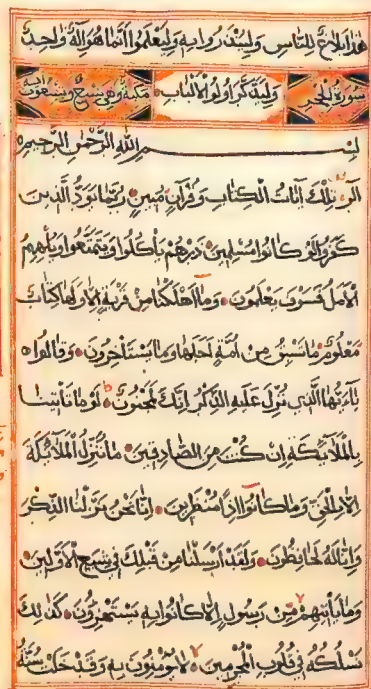 هذا بلاغ للناس ولينذروا به وليعلموا أنما هو إله واحد
سورة الحجر وليذكر أولوا الألباب مكية وهي تسع وتسعون آية
بسم الله الرحمن الرحيم
الر تلك آيات الكتاب وقرآن مبين ربما يود الذين
كفروا لو كانوا مسلمين ذرهم يأكلوا ويتمتعوا ويلههم
الأمل فسوف يعلمون وما أهلكنا من قرية إلا ولها كتاب
معلوم ما تسبق من أمة أجلها وما يستأخرون وقالوا
يا أيها الذي نزل عليه الذكر إنك لمجنون لو ما تأتينا
بالملائكة إن كنت من الصادقين ما ننزل الملائكة
إلا بالحق وما كانوا إذا منظرين إنا نحن نزلنا الذكر
وإنا له لحافظون ولقد أرسلنا من قبلك في شيع الأولين
وما يأتيهم من رسول إلا كانوا به يستهزؤن كذلك
نسلكه في قلوب المجرمين لا يؤمنون به وقد خلت سنة